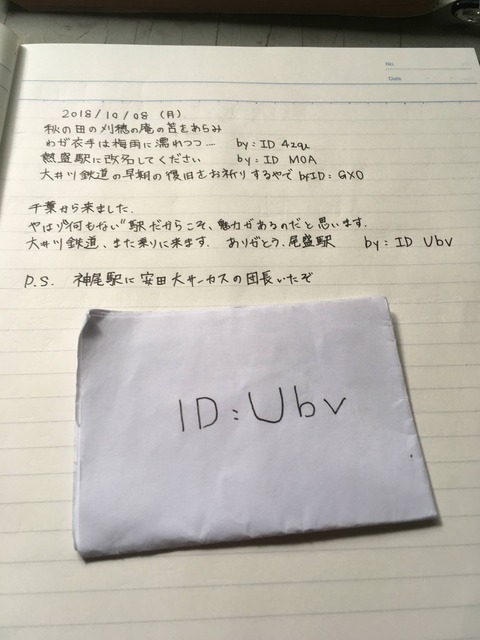 No.
Date
2018/10/08 (月)
秋の田の刈穂の庵の苫をあらみ
わが衣手は梅雨に濡れつつ…. by: ID 4zqu
盛駅に改名してください by: ID MOA
大井川鉄道の早期の復旧をお祈りするやで by ID: GXO
千葉から来ました.
やはり"何もない"駅だからこそ、魅力があるのだと思います.
大井川鉄道、また乗りに来ます. ありがとう、尾盛駅 by: ID Ubv
P.S. 神尾駅に安田大サーカスの団長いたぞ
ID: Ubv